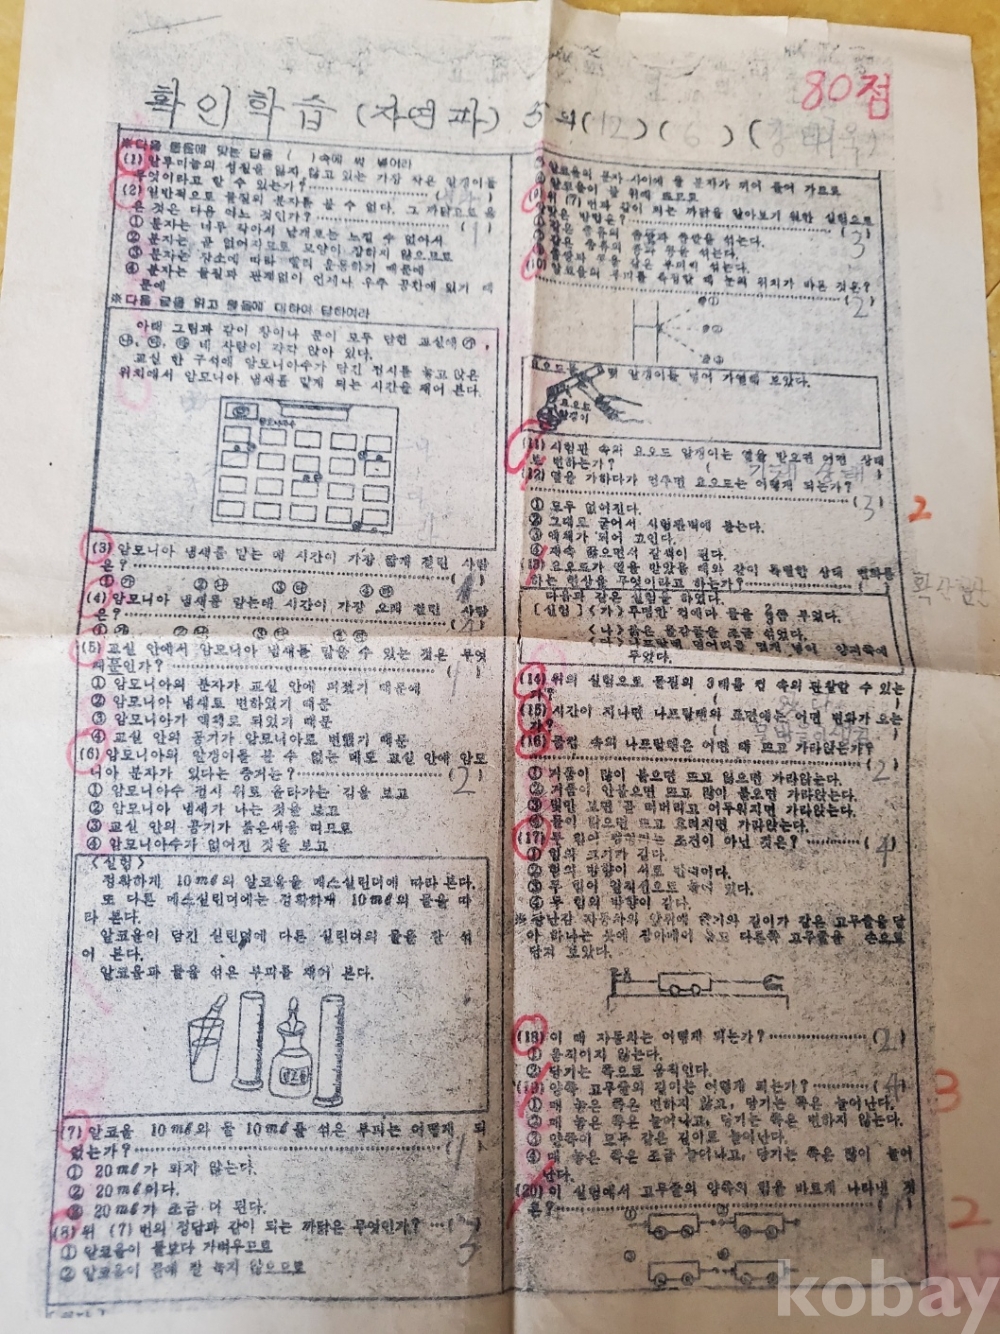 80점
확인학습 (자연과) 5의(12)(6)(
※다음 물음에 맞는 답을 ( )속에 써 넣어라
(1) 알루미늄의 성질을 잃지 않고 있는 가장 작은 알갱이를
무엇이라고 할 수 있는가?
(2) 일반적으로 물질의 분자를 볼 수 없다. 그 까닭으로 옳
은 것은 다음 어느 것인가? ( 1 )
① 분자는 너무 작아서 낱개로는 느낄 수 없어서
② 분자는 곧 없어지므로 모양이 잡히지 않으므로
③ 분자는 장소에 따라 빨리 운동하기 때문에
④ 분자는 물질과 관계없이 언제나 우주 공간에 있기 때
문에
※다음 글을 읽고 물음에 대하여 답하여라
아래 그림과 같이 창이나 문이 모두 닫힌 교실에 ㉮,
㉯, ㉰, ㉱ 네 사람이 각각 앉아 있다.
교실 한 구석에 암모니아수가 담긴 접시를 놓고 앉은
위치에서 암모니아 냄새를 맡게 되는 시간을 재어 본다.
암모니아수
(3) 암모니아 냄새를 맡는 데 시간이 가장 짧게 걸린 사람
은? ( 1 )
① ㉮ ② ㉯ ③ ㉰ ④ ㉱
(4) 암모니아 냄새를 맡는데 시간이 가장 오래 걸린 사람
은? ( 4 )
① ㉮ ② ㉯ ③ ㉰ ④ ㉱
(5) 교실 안에서 암모니아 냄새를 맡을 수 있는 것은 무엇
때문인가? ( 1 )
① 암모니아의 분자가 교실 안에 퍼졌기 때문에
② 암모니아 냄새로 변하였기 때문
③ 암모니아가 액체로 되었기 때문
④ 교실 안의 공기가 암모니아로 변했기 때문
(6) 암모니아의 알갱이를 볼 수 없는 데도 교실 안에 암모
니아 분자가 있다는 증거는? ( 2 )
① 암모니아수 접시 위로 올라가는 김을 보고
② 암모니아 냄새가 나는 것을 보고
③ 교실 안의 공기가 붉은색을 띠므로
④ 암모니아수가 없어진 것을 보고
<실험>
정확하게 10mℓ의 알코올을 메스실린더에 따라 본다.
또 다른 메스실린더에는 정확하게 10mℓ의 물을 따
라 본다.
알코올이 담긴 실린더에 다른 실린더의 물을 잘 섞
어 본다.
알코올과 물을 섞은 부피를 재어 본다.
(7) 알코올 10mℓ와 물 10mℓ를 섞은 부피는 어떻게 되
었는가? ( 1 )
① 20mℓ가 되지 않는다.
② 20mℓ이다.
③ 20mℓ가 조금 더 된다.
(8) 위 (7) 번의 정답과 같이 되는 까닭은 무엇인가? ( 3 )
① 알코올이 물보다 가벼우므로
② 알코올이 물에 잘 녹지 않으므로
③ 알코올의 분자 사이에 물 분자가 끼어 들어 가므로
④ 알코올이 물 위에 뜨므로
(9) 위 (7) 번과 같이 되는 까닭을 알아보기 위한 실험으로
알맞은 방법은? ( 3 )
① 같은 종류의 콩알과 콩알을 섞는다.
② 같은 종류의 콩과 콩을 섞는다.
(10) 알코올의 부피를 측정할 때 눈의 위치가 바른 것은?
( 2 )
요오드를 알갱이를 넣어 가열해 보았다.
요오드
알갱이
(11) 시험관 속의 요오드 알갱이는 열을 받으면 어떤 상태
로 변하는가? ( 기체 상태 )
(12) 열을 가하다가 멈추면 요오드는 어떻게 되는가?
( 3 ) 2
① 모두 없어진다.
② 그대로 굳어서 시험관벽에 붙는다.
③ 액체가 되어 고인다.
④ 계속 끓으면서 갈색이 된다.
(13) 요오드가 열을 받았을 때와 같이 독특한 상태 변화를
하는 현상을 무엇이라고 하는가? ( )
확산현상
다음과 같은 실험을 하였다.
[실험] <가> 투명한 컵에다 물을 2/3쯤 부었다.
<나> 붉은 물감물을 조금 섞었다.
(14) 위의 실험으로 물질의 3태를 컵 속의 관찰할 수 있는
가? ( 있다 )
(15) 시간이 지나면 나프탈렌의 표면에는 어떤 변화가 오는
가?
(16) 물컵 속의 나프탈렌은 어떤 때 뜨고 가라앉는가?
( 2 )
① 거품이 많이 붙으면 뜨고 없으면 가라앉는다.
② 거품이 안붙으면 뜨고 많이 붙으면 가라앉는다.
③ 빛만 보면 곧 떠버리고 어두워지면 가라앉는다.
④ 물이 맑으면 뜨고 흐려지면 가라앉는다.
(17) 두 힘이 평형되는 조건이 아닌 것은? ( 4 )
① 힘의 크기가 같다.
② 힘의 방향이 서로 반대이다.
③ 두 힘이 일직선으로 놓여 있다.
④ 두 힘의 방향이 같다.
※ 장난감 자동차의 앞뒤에 굵기와 길이가 같은 고무줄을 달
아 하나는 못에 잡아매어 놓고 다른쪽 고무줄을 손으로
당겨 보았다.
(18) 이 때 자동차는 어떻게 되는가? ( 2 )
① 움직이지 않는다.
② 당기는 쪽으로 움직인다.
(19) 양쪽 고무줄의 길이는 어떻게 되는가? ( 4 ) 3
① 매 놓은 쪽은 변하지 않고, 당기는 쪽은 늘어난다.
② 매 놓은 쪽은 늘어나고, 당기는 쪽은 변하지 않는다.
③ 양쪽이 모두 같은 길이로 늘어난다.
④ 매 놓은 쪽은 조금 늘어나고, 당기는 쪽은 많이 늘어
난다.
(20) 이 실험에서 고무줄의 양쪽의 힘을 바르게 나타낸 것
은? ( 1 ) 2
kobay